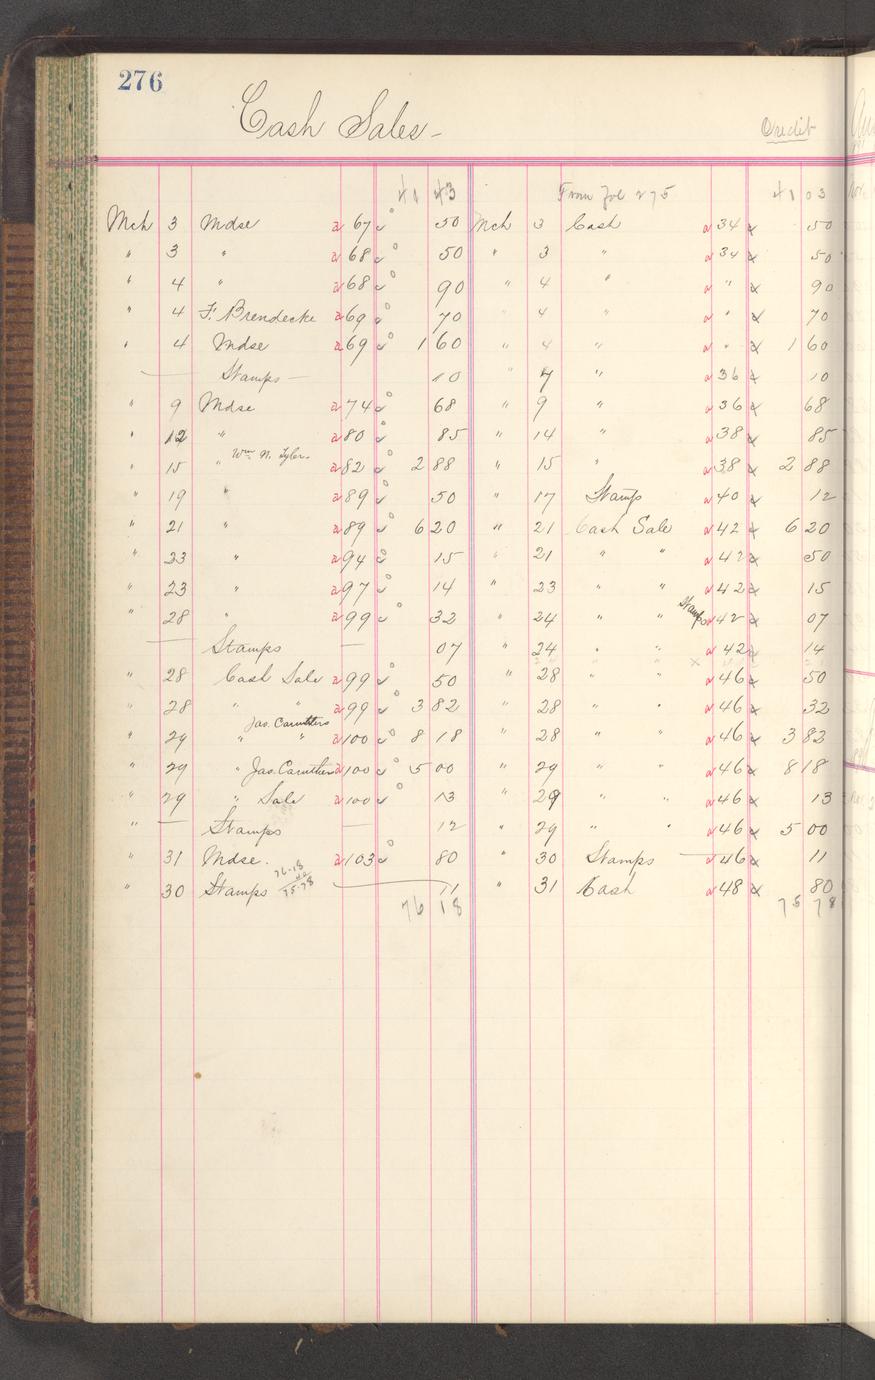 276
Cash Sales -
Credit
41 43 From Fol 275 41 03
Mch 3 Mdse a 67 50 Mch 3 Cash a 34 50
" 3 " a 68 50 " 3 " a 34 50
" 4 " a 68 90 " 4 " a " 90
" 4 F. Brendecke a 69 70 " 4 " a " 70
" 4 Mdse a 69 1 60 " 4 " a " 1 60
— Stamps — 10 " 7 " a 36 10
" 9 Mdse a 74 68 " 9 " a 36 68
" 12 " a 80 85 " 14 " a 38 85
" 15 " Wm N. Tyler a 82 2 88 " 15 " a 38 2 88
" 19 " a 89 50 " 17 Stamps a 40 12
" 21 " a 89 6 20 " 21 Cash Sale a 42 6 20
" 23 " a 94 15 " 21 " " a 42 50
" 23 " a 97 14 " 23 " " a 42 15
" 28 " a 99 32 " 24 " " Stamps a 42 07
— Stamps — 07 " 24 " " a 42 14
" 28 Cash Sale a 99 50 " 28 " " a 46 50
" 28 " " a 99 3 82 " 28 " " a 46 32
" 29 " " Jas. Caruthers a 100 8 18 " 28 " " a 46 3 82
" 29 " Jas. Caruthers a 100 5 00 " 29 " " a 46 8 18
" 29 " Sale a 100 13 " 29 " " a 46 13
" — Stamps — 12 " 29 " " a 46 5 00
" 31 Mdse. a 103 80 " 30 Stamps — a 46 11
" 30 Stamps 76.18 40 75.78 — 11 " 31 Cash a 48 80
76 18 75 78